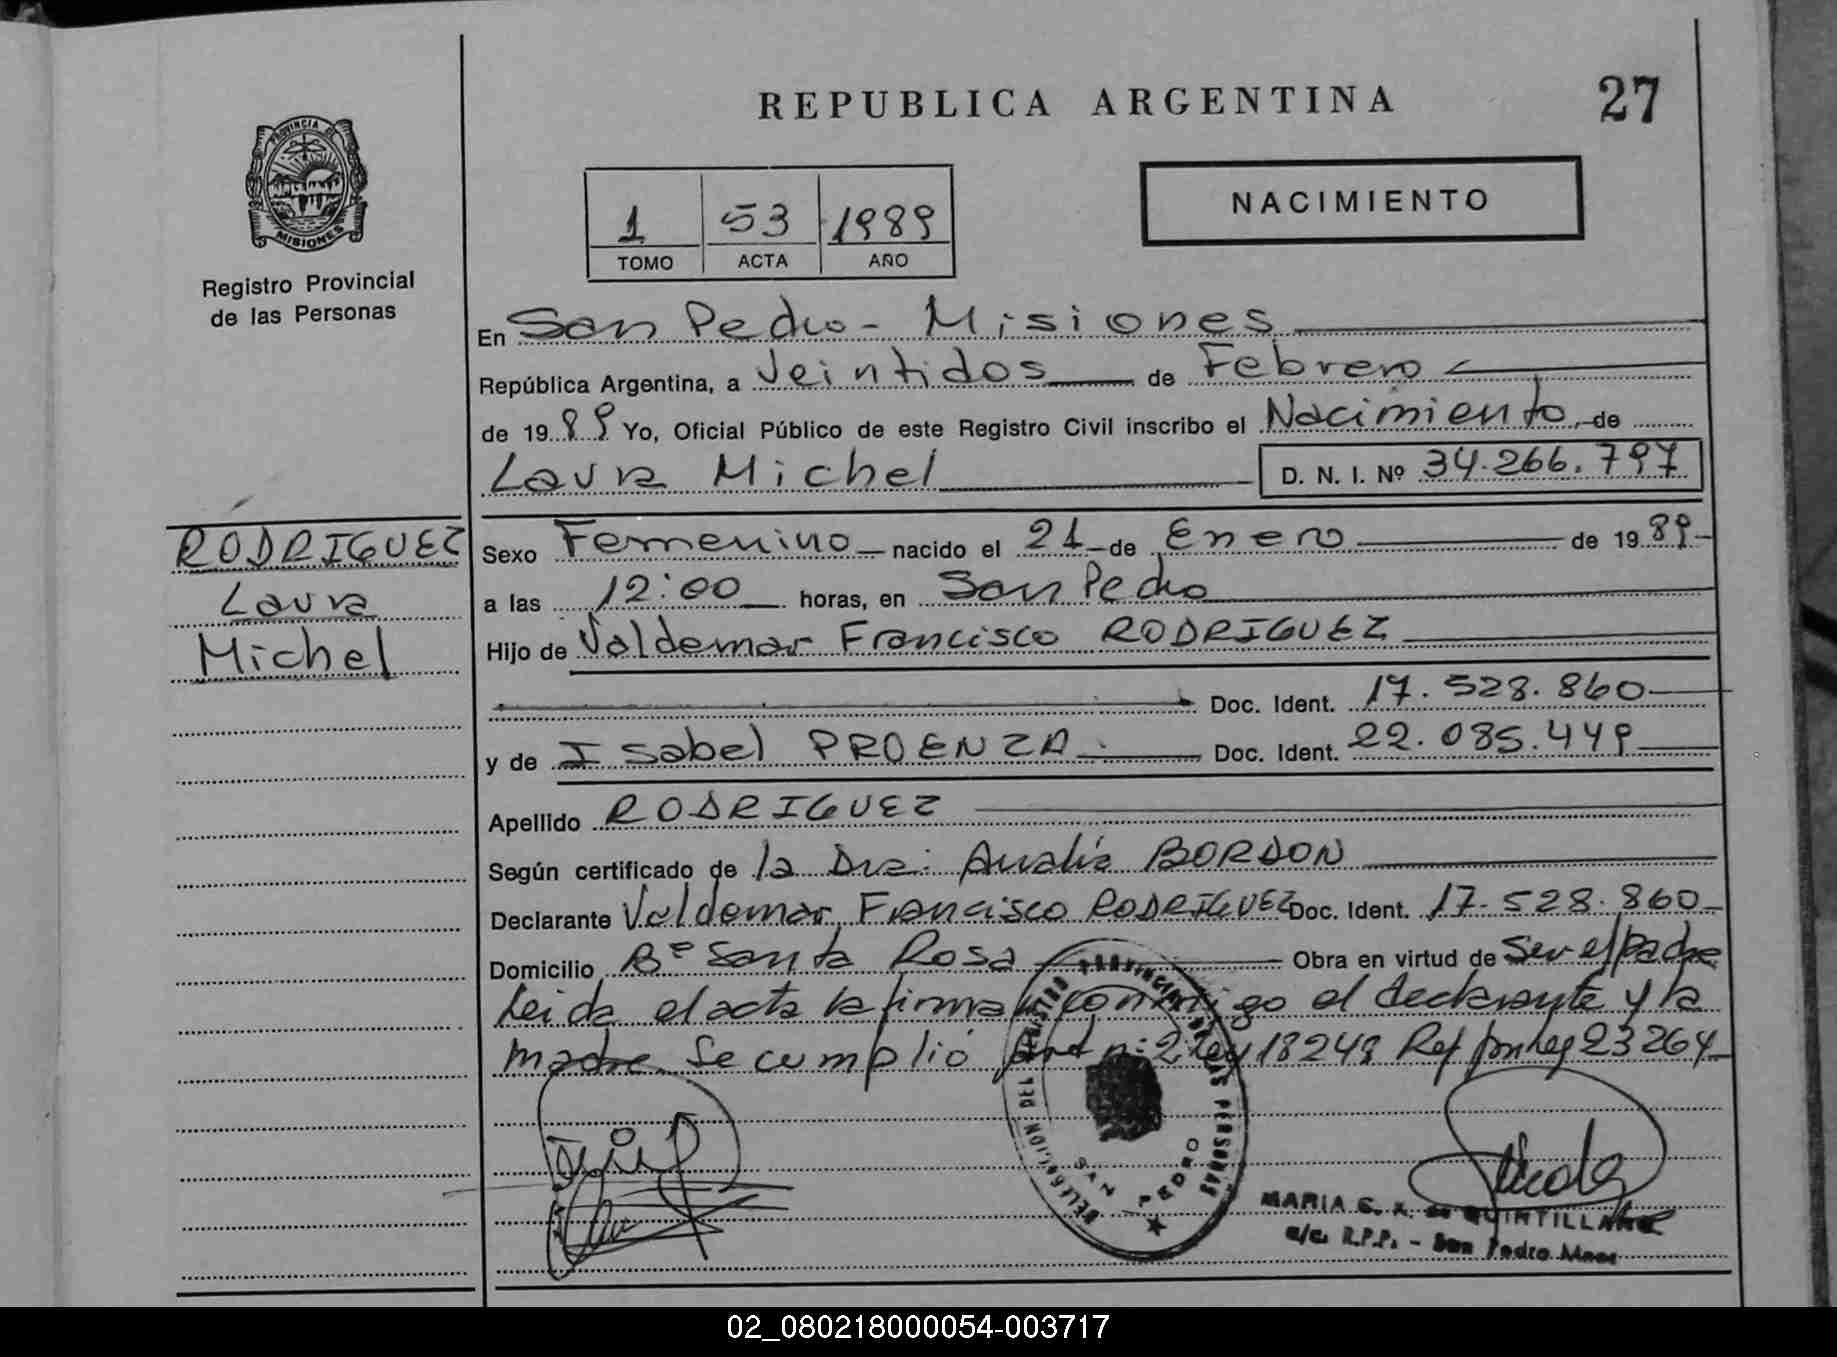 REPUBLICA ARGENTINA
27
PROVINCIA DE
MISIONES
Registro Provincial
de las Personas
1 53 1989
TOMO ACTA AÑO
NACIMIENTO
En San Pedro - Misiones
República Argentina, a Veintidos de Febrero
de 1989 Yo, Oficial Público de este Registro Civil inscribo el Nacimiento de
Laura Michel D. N. I. Nº 34.266.797
RODRIGUEZ
Laura
Michel
Sexo Femenino nacido el 21 de Enero de 1989
a las 12:00 horas, en San Pedro
Hijo de Valdemar Francisco RODRIGUEZ
Doc. Ident. 17.528.860
y de Isabel PROENZA Doc. Ident. 22.085.449
Apellido RODRIGUEZ
Según certificado de la Dra: Analía BORDON
Declarante Valdemar Francisco RODRIGUEZ Doc. Ident. 17.528.860
Domicilio Bº Santa Rosa Obra en virtud de Ser el padre
Leida el acta la firman conmigo el declarante y la
madre Se cumplió Art n: 2 ley 18248 Ref por ley 23264
DELEGACION DEL REGISTRO PROVINCIAL DE LAS PERSONAS
SAN PEDRO
MARIA de QUINTILLANA
a/c. R.P.P. - San Pedro Mnes
02_080218000054-003717